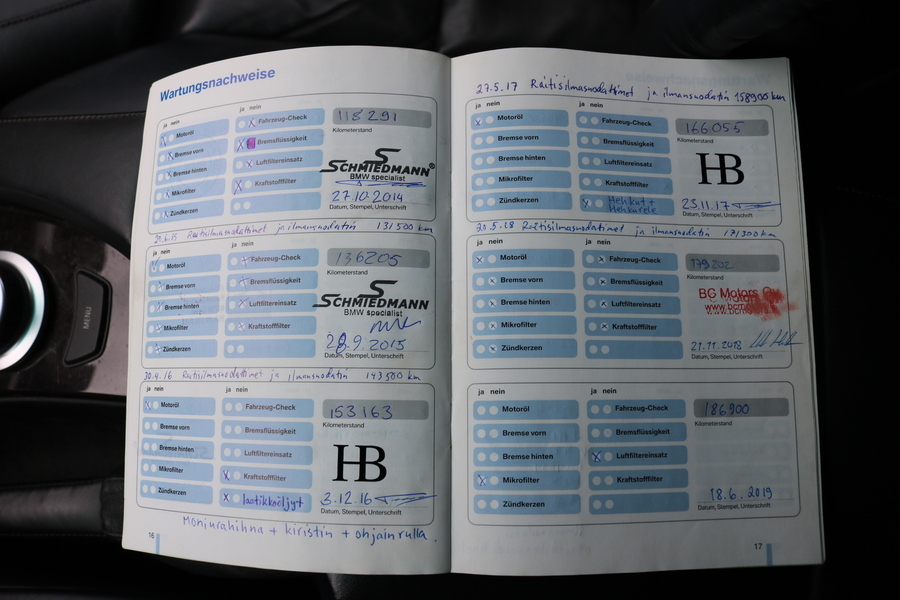 Wartungsnachweise
ja nein
ja nein
Motoröl
Bremse vorn
Bremse hinten
Mikrofilter
Zündkerzen
Fahrzeug-Check
Bremsflüssigkeit
Luftfiltereinsatz
Kraftstofffilter
118291
Kilometerstand
SCHMIEDMANN®
BMW specialist
27.10.2014
Datum, Stempel, Unterschrift
30.6.15 Raitisilmasuodattimet ja ilmansuodatin 131500 km
ja nein
ja nein
Motoröl
Bremse vorn
Bremse hinten
Mikrofilter
Zündkerzen
Fahrzeug-Check
Bremsflüssigkeit
Luftfiltereinsatz
Kraftstofffilter
136205
Kilometerstand
SCHMIEDMANN
28.9.2015
Datum, Stempel, Unterschrift
30.4.16 Raitisilmasuodattimet ja ilmansuodatin 143500 km
ja nein
ja nein
Motoröl
Bremse vorn
Bremse hinten
Mikrofilter
Zündkerzen
Fahrzeug-Check
Bremsflüssigkeit
Luftfiltereinsatz
Kraftstofffilter
laatikkoöljyt
153163
Kilometerstand
HB
3.12.16
Datum, Stempel, Unterschrift
Moniurahihna + kiristin + ohjainrulla.
16
27.5.17 Raitisilmasuodattimet ja ilmansuodatin 158900 km
ja nein
ja nein
Motoröl
Bremse vorn
Bremse hinten
Mikrofilter
Zündkerzen
Fahrzeug-Check
Bremsflüssigkeit
Luftfiltereinsatz
Kraftstofffilter
166055
Kilometerstand
HB
23.11.17
Datum, Stempel, Unterschrift
20.5.18 Raitisilmasuodattimet ja ilmansuodatin 171300 km
ja nein
ja nein
Motoröl
Bremse vorn
Bremse hinten
Mikrofilter
Zündkerzen
Fahrzeug-Check
Bremsflüssigkeit
Luftfiltereinsatz
Kraftstofffilter
179202
Kilometerstand
BC Motors Oy
21.11.2018
Datum, Stempel, Unterschrift
ja nein
ja nein
Motoröl
Bremse vorn
Bremse hinten
Mikrofilter
Zündkerzen
Fahrzeug-Check
Bremsflüssigkeit
Luftfiltereinsatz
Kraftstofffilter
186900
Kilometerstand
18.6.2019
Datum, Stempel, Unterschrift
17
MENU